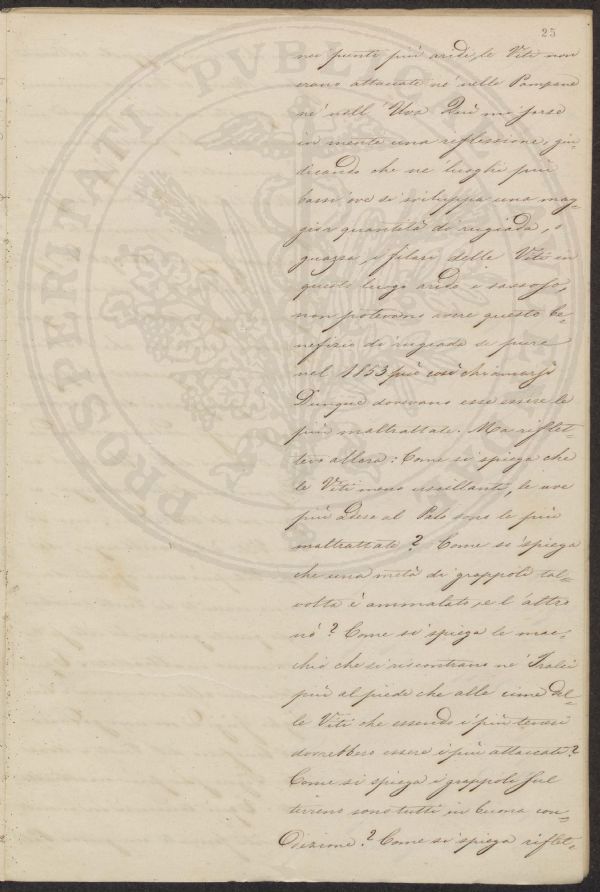 25
PROSPERITATI PVBLICAE
nei punti più aridi, le Viti non
erano attaccate nè nelle Pampane
nè nell' Uva Quì mi sorse
in mente una riflessione, giu-
dicando che ne' luoghi più
bassi ove si sviluppa una mag-
gior quantità di rugiada, o
guazza, i filari delle Viti in
questo luogo arido e sassoso,
non potevano avere questo be-
nefizio di rugiada se pure
nel 1853 può così chiamarsi
Dunque dovevano esse essere le
più maltrattate. Ma riflet-
tevo allora: Come si spiega che
le Viti meno oscillanti, le uve
più adese al Palo sono le più
maltrattate? Come si spiega
che una metà di grappoli tal-
volta è ammalato, e l'altro
nò? Come si spiega le mac-
chie che si riscontrano ne' Tralci
più al piede che alle cime del-
le Viti che essendo i più teneri
dovrebbero essere i più attaccati?
Come si spiega i grappoli sul
terreno sono tutti in buona con-
dizione? Come si spiega riflet-